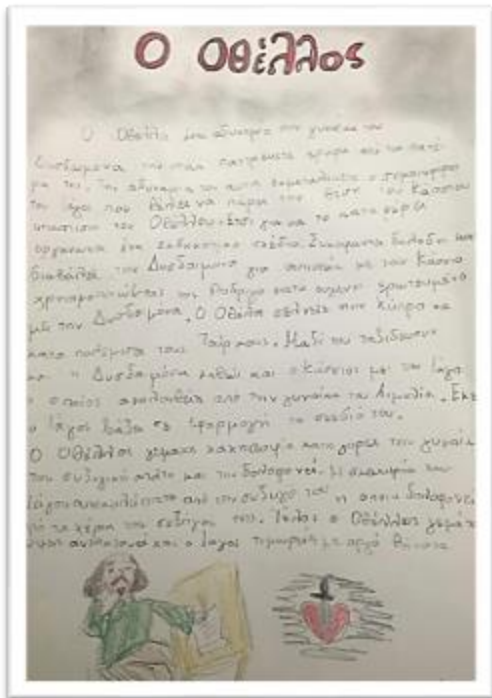 Ο Οθέλλος
Ο Οθέλλο έχει αδυναμία την γυναίκα του
Δυσδαιμόνα την οποία παντρεύεται κρυφά από τον πατέ-
ρα της. Την αδυναμία του αυτή εκμεταλλεύεται ο σημαιοφόρος
του Ιάγος που θέλει να πάρει την θέση του Κάσσιου
υπασπιστή του Οθέλλου. Έτσι για να το καταφέρει
οργανώνει ένα εκδικητικό σχέδιο. Συγκεκριμένα δηλαδή
διαβάλλει την Δυσδαιμόνα για απιστία με τον Κάσσιο
χρησιμοποιώντας τον Ροδρίγο κατά ερωτευμένο
με την Δυσδαιμόνα. Ο Οθέλλο στέλνεται στην Κύπρο να
καταπολεμήσει τους Τούρκους. Μαζί του ταξιδεύουν
και η Δυσδαιμόνα καθώς και ο Κάσσιος με τον Ιάγο
ο οποίος ακολουθείται από την γυναίκα του Αιμιλία. Εκεί
ο Ιάγος βάζει σε εφαρμογή το σχέδιό του.
Ο Οθέλλος γεμάτος καχυποψία κατηγορεί την γυναίκα
του συζυγική απάτη και την δολοφονεί. Η σκευωρία του
Ιάγου αποκαλύπτεται από την σύζυγό του η οποία δολοφονεί
από τα χέρια του συζύγου της. Τέλος ο Οθέλλος γεμάτος
τύψεις αυτοκτονεί και ο Ιάγος τιμωρείται με αργό θάνατο